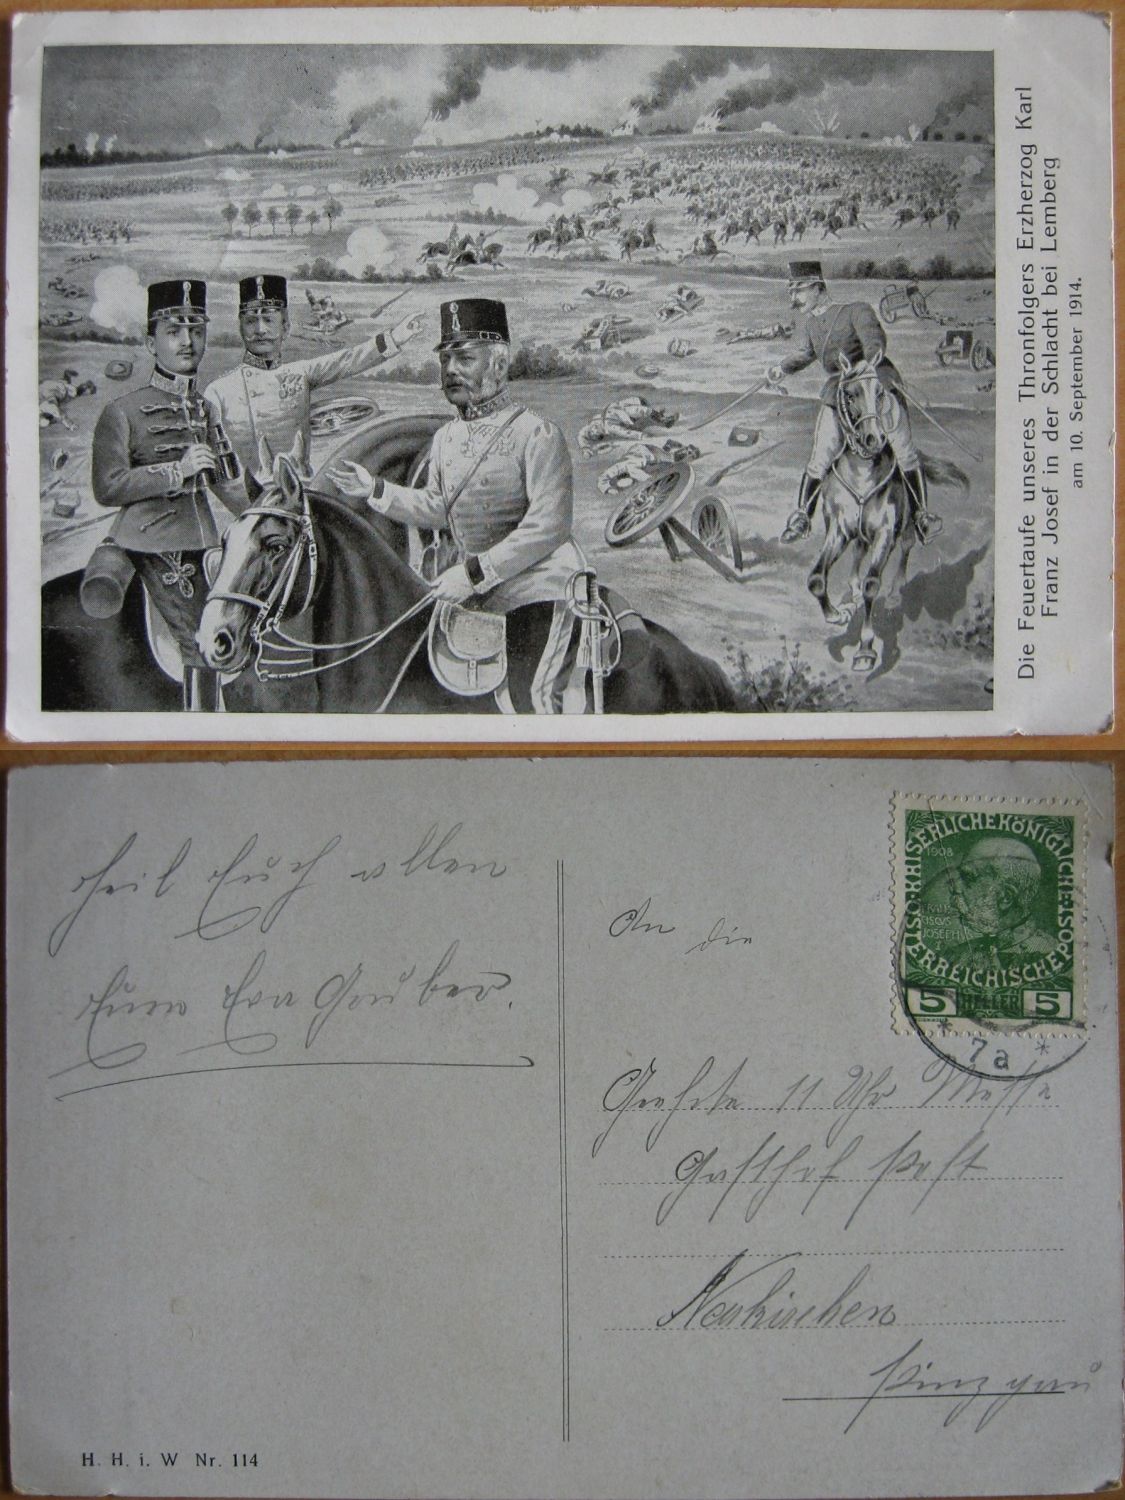 Die Feuertaufe unseres Thronfolgers Erzherzog Karl
Franz Josef in der Schlacht bei Lemberg
am 10. September 1914.
Heil Euch allen
Eure Eva Gruber.
An die
Geehrte 11 Uhr Messe
Gasthof Post
Neukirchen
Pinzgau
KAISERLICHEKÖNIGLICHE
ÖSTERREICHISCHE
POST
1908
FRANCISCVS
JOSEPH I
5 HELLER 5
* 7a *
H. H. i. W Nr. 114